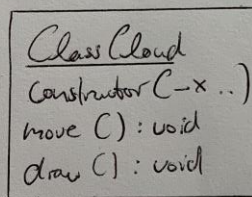 Class Cloud
constructor(-x ..)
move () : void
draw () : void